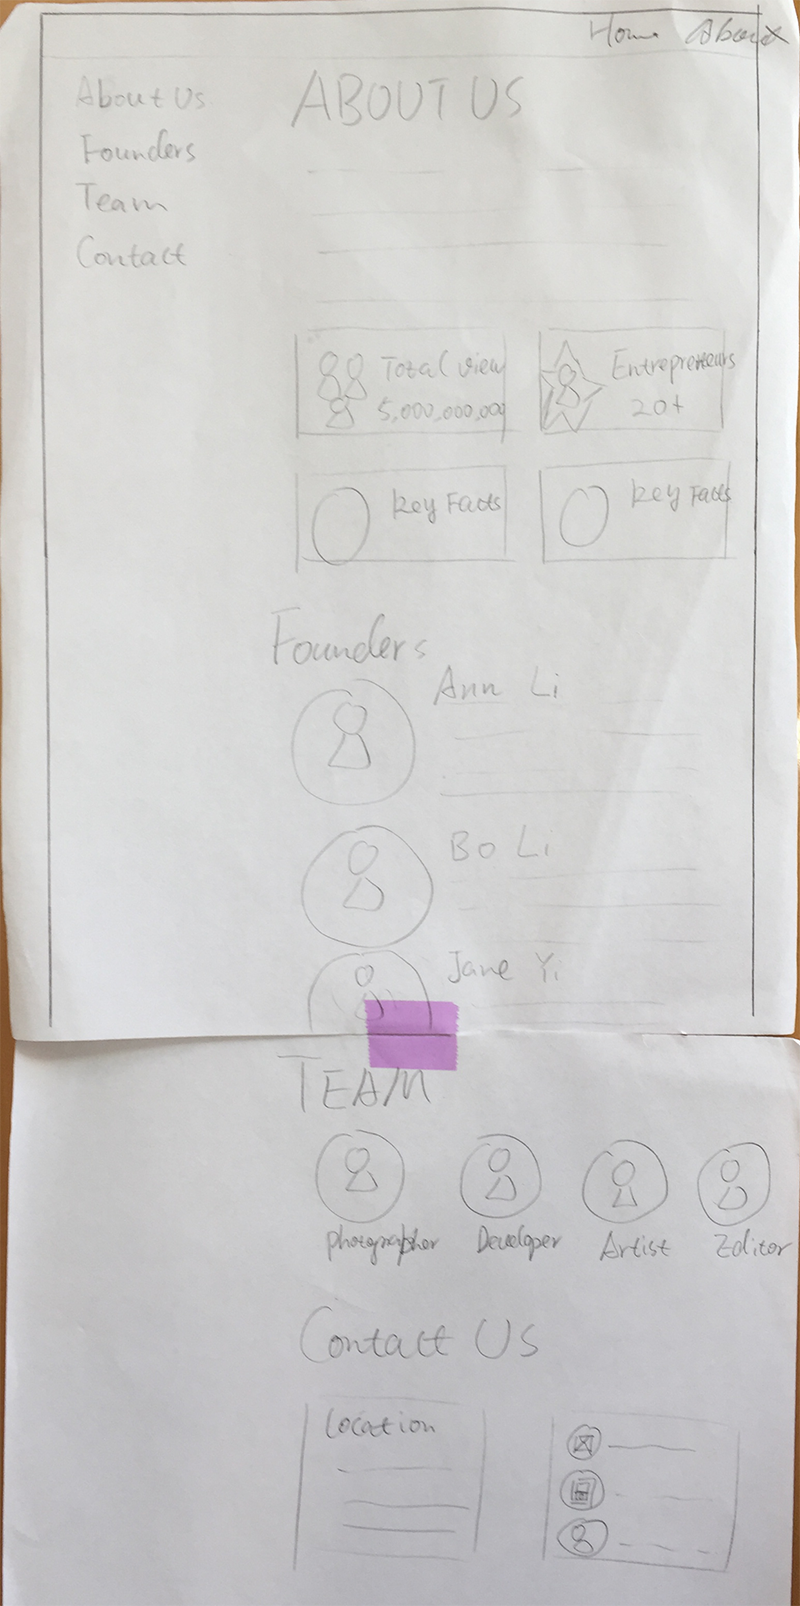 Home About
About Us
Founders
Team
Contact
ABOUT US
Total view
5,000,000,000
Entrepreneurs
20+
Key Facts
Key Facts
Founders
Ann Li
Bo Li
Jane Yi
TEAM
Photographer
Developer
Artist
Editor
Contact Us
Location